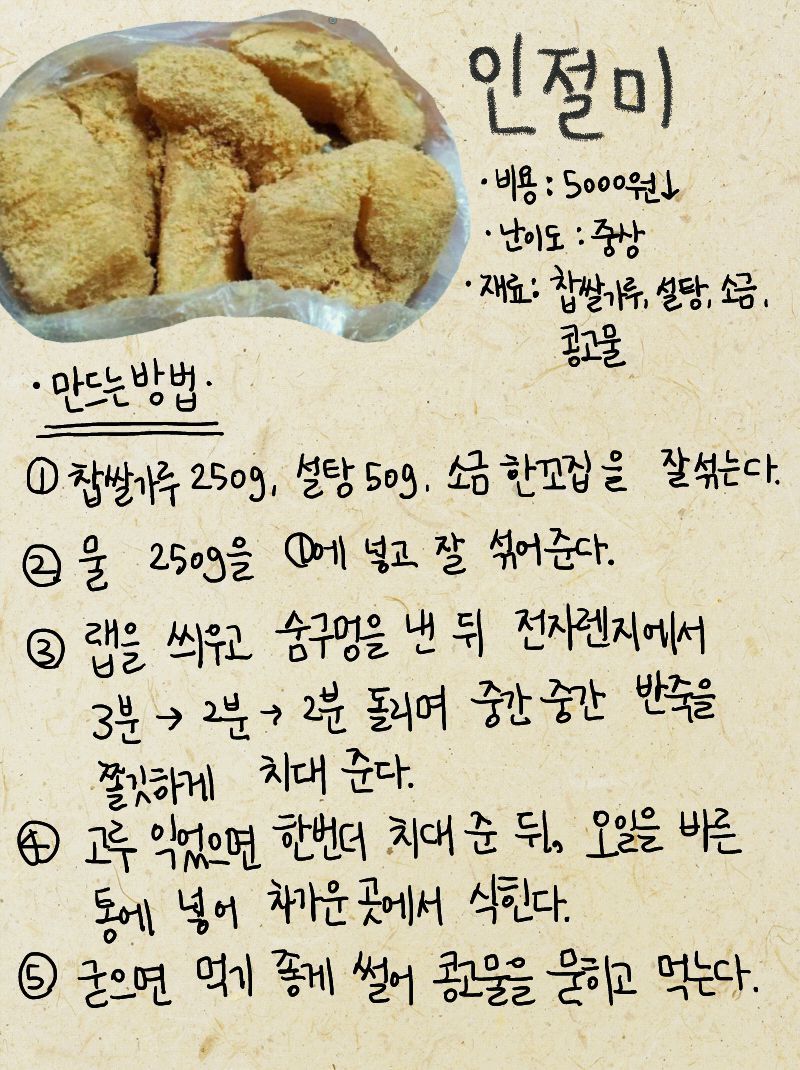 인절미
· 비용 : 5000원↓
· 난이도 : 중상
· 재료 : 찹쌀가루, 설탕, 소금,
콩고물
· 만드는방법 ·
① 찹쌀가루 250g, 설탕 50g, 소금 한꼬집을 잘섞는다.
② 물 250g을 ①에 넣고 잘 섞어준다.
③ 랩을 씌우고 숨구멍을 낸 뒤 전자렌지에서
3분 → 2분 → 2분 돌리며 중간중간 반죽을
쫄깃하게 치대 준다.
④ 고루 익었으면 한번더 치대 준 뒤, 오일을 바른
통에 넣어 차가운 곳에서 식힌다.
⑤ 굳으면 먹기 좋게 썰어 콩고물을 묻히고 먹는다.